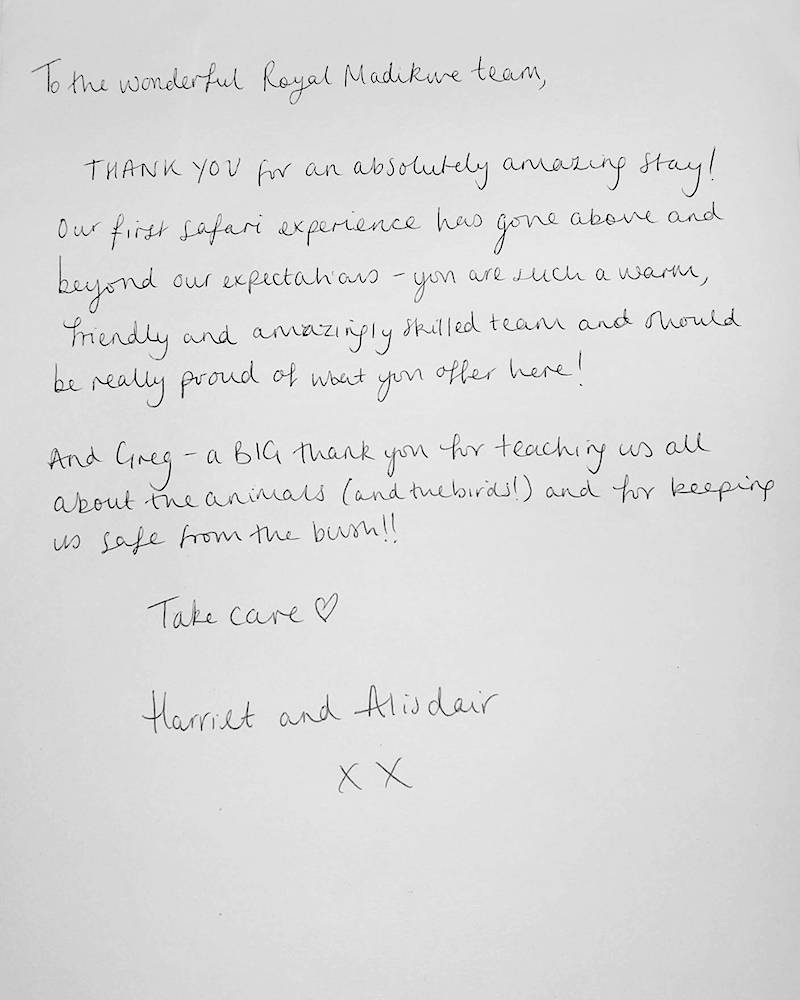 To the wonderful Royal Madikwe team,
THANK YOU for an absolutely amazing stay!
Our first safari experience has gone above and
beyond our expectations - you are such a warm,
friendly and amazingly skilled team and should
be really proud of what you offer here!
And Greg - a BIG thank you for teaching us all
about the animals (and the birds!) and for keeping
us safe from the bush!!
Take care ♡
Harriet and Alisdair
X X